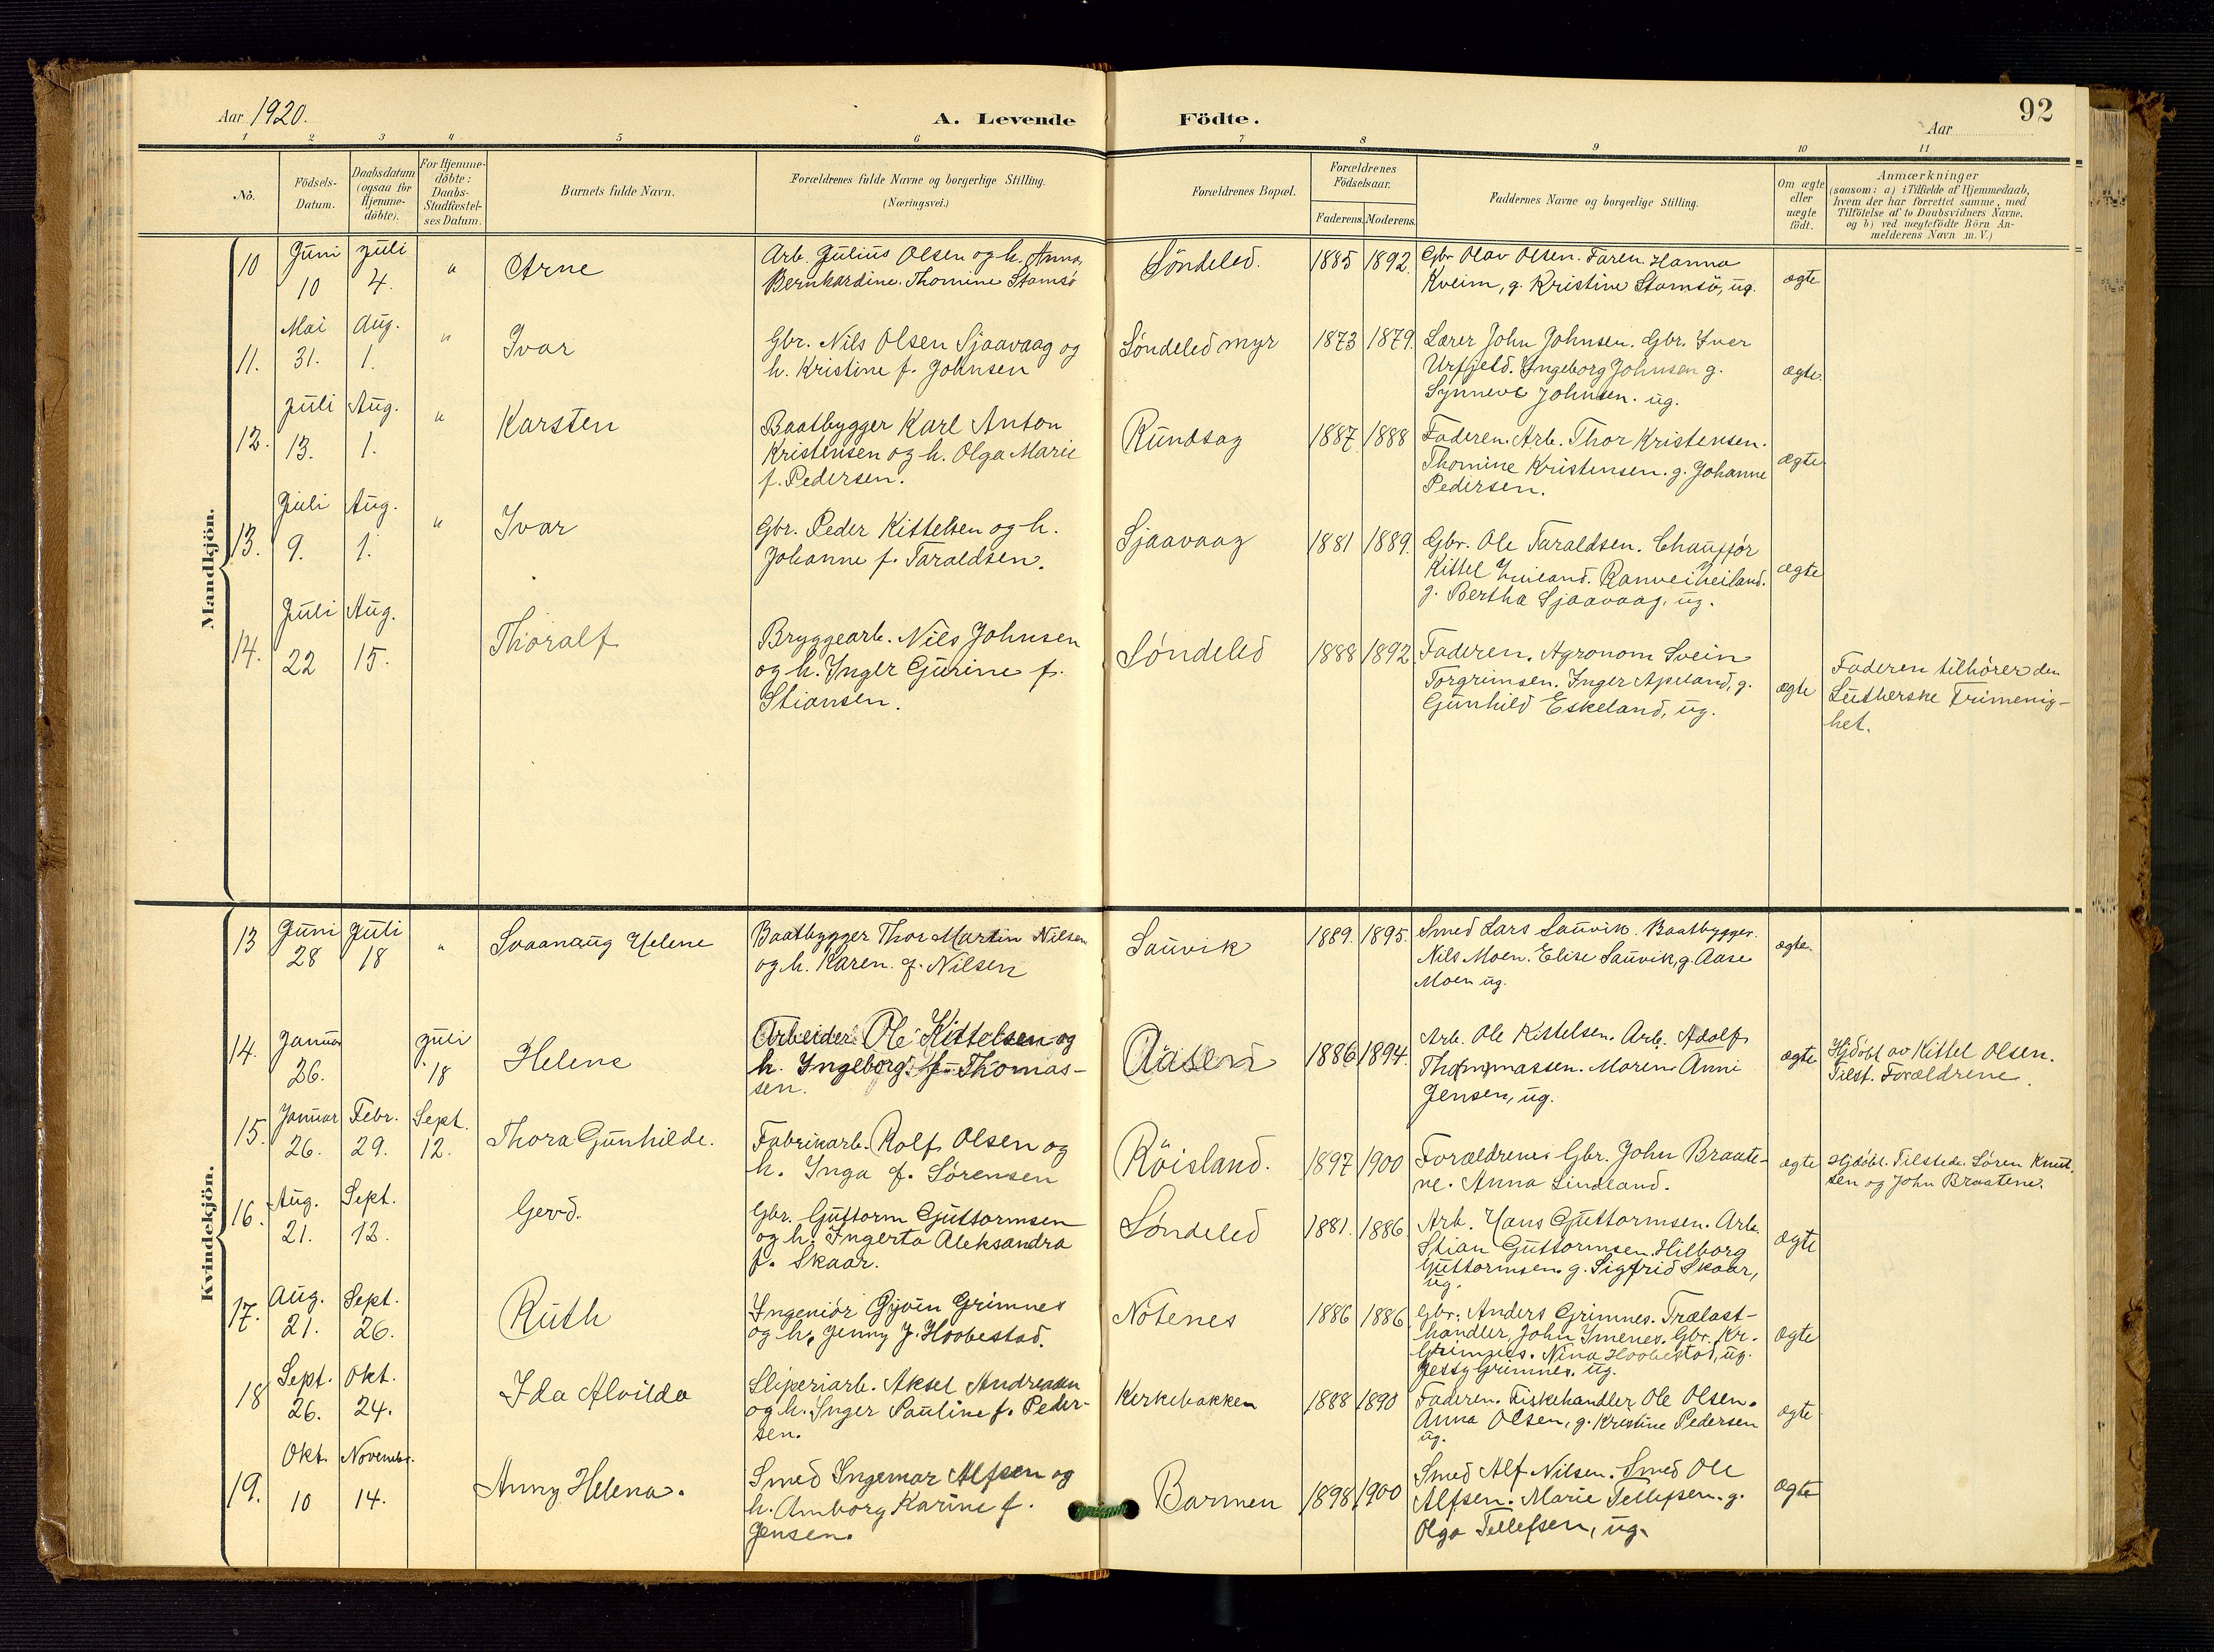 Aar 1920.
A. Levende Födte.
Aar
92
1 2 3 4 5 6 7 8 9 10 11
No.
Födsels-
Datum.
Daabsdatum
(ogsaa for
Hjemme-
döbte).
For Hjemme-
döbte:
Daabs-
Stadfæstel-
ses Datum.
Barnets fulde Navn.
Forældrenes fulde Navne og borgerlige Stilling.
(Næringsvei.)
Forældrenes Bopæl.
Forældrenes
Födselsaar.
Faderens. Moderens.
Faddernes Navne og borgerlige Stilling.
Om ægte
eller
uægte
födt.
Anmærkninger
(saasom: a) i Tilfælde af Hjemmedaab,
hvem der har forrettet samme, med
Tilföielse af to Daabsvidners Navne,
og b) ved uægtefödte Börn An-
melderens Navn m. V.)
Mandkjön.
10
Juni
10
Juli
4.
"
Arne
Arb. Julius Olsen og h. Anna
Bernhardine Thomine Stamsö
Søndeled.
1885 1892.
Gbr. Olav Olsen. Faren. Hanna
Kveim, g. Kristine Stamsö, ug.
ægte
11.
Mai
31.
Aug.
1.
"
Ivar
Gbr. Nils Olsen Sjaavaag og
h. Kristine f. Johnsen
Søndeled myr
1873 1879.
Lærer John Johnsen. Gbr. Iver
Urfjeld. Ingeborg Johnsen g.
Synneve Johnsen. ug.
ægte.
12.
Juli
13.
Aug.
1.
"
Karsten
Baatbygger Karl Anton
Kristensen og h. Olga Marie
f. Pedersen.
Rundsag
1887 1888
Faderen. Arb. Thor Kristensen.
Thomine Kristensen. g. Johanne
Pedersen.
ægte
13.
Juli
9.
Aug.
1.
"
Ivar
Gbr. Peder Kittelsen og h.
Johanne f. Taraldsen.
Sjaavaag
1881 1889.
Gbr. Ole Taraldsen. Chauffør
Kittel Heiland. Ranvei Heiland.
g. Bertha Sjaavaag, ug.
ægte
14.
Juli
22
Aug.
15.
Thoralf
Bryggearb. Nils Johnsen
og h. Inger Gurine f.
Stiansen.
Søndeled
1888 1892
Faderen. Agronom Svein
Torgrimsen. Inger Apeland, g.
Gunhild Eskeland, ug.
ægte
Faderen tilhører den
Lutherske Frimenig-
het.
Kvindekjön.
13
Juni
28
Juli
18
"
Svaanaug Helene
Baatbygger Thor Martin Nilsen
og h. Karen f. Nilsen
Sauvik
1889. 1895.
Smed Lars Sauvik. Baatbygger
Nils Moen. Elise Sauvik, g. Aase
Moen ug.
ægte.
14.
Januar
26.
Juli
18
Helene
Arbeider Ole Kittelsen og
h. Ingeborg f. Thomas-
sen.
Aasen
1886 1894.
Arb. Ole Kittelsen. Arb. Adolf
Thommassen. Maren Anni
Jensen, ug.
ægte
Hjdöbt av Kittel Olsen.
Tilst. Forældrene.
15.
Januar
26.
Febr.
29.
Sept.
12.
Thora Gunhilde.
Fabrikarb. Rolf Olsen og
h. Inga f. Sørensen
Röisland.
1897 1900
Forældrene. Gbr. John Braate-
ne. Anna Lindland.
ægte
Hjdöbt. Tilstede. Søren Knut-
sen og John Braatene.
16.
Aug.
21.
Sept.
12.
Gerd.
Gbr. Guttorm Guttormsen
og h. Ingerta Aleksandra
f. Skaar.
Søndeled
1881. 1886
Arb. Hans Guttormsen. Arb.
Stian Guttormsen. Hilborg
Guttormsen. g. Sigfrid Skaar,
ug.
ægte
17.
Aug.
21.
Sept.
26.
Ruth
Ingeniör Grimnes
og h. Jenny f. Hovbestad.
Notenes
1886 1886
Gbr. Anders Grimnes. Trælast-
handler John Ymenes. Gbr. Kr.
Grimnes. Nina Hovbestad, ug.
Jessy Grimnes. ug.
ægte
18
Sept.
26.
Okt.
24.
Ida Alvilda
Sliperiarb. Aksel Andreasen
og h. Inger Pauline f. Peder-
sen.
Kerkebakken
1888 1890
Faderen. Fiskehandler Ole Olsen.
Anna Olsen, g. Kristine Pedersen
ug.
ægte
19.
Okt.
10
Novembr.
14.
Anny Helena.
Smed Ingemar Alfsen og
h. Amborg Karine f.
Jensen.
Barmen
1898 1900
Smed Alf Nilsen. Smed Ole
Alfsen. Marie Tellefsen. g.
Olga Tellefsen, ug.
ægte